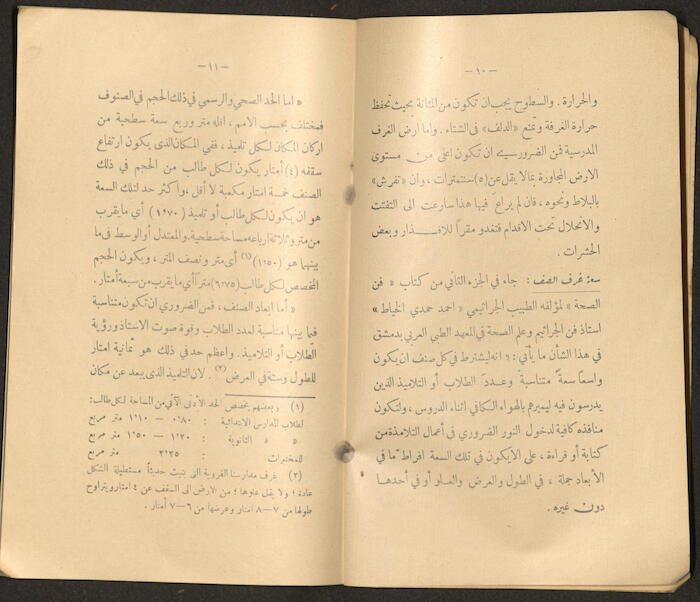 — ١٠ —
والحرارة . والسطوح يجب ان تكون من المتانة بحيث تحفظ
حرارة الغرفة وتمنع «الدلف» في الشتاء . واما ارض الغرف
المدرسية فمن الضروري ان تكون اعلى من مستوى
الارض المجاورة بما لا يقل عن (٥) سنتمترات ، وان «تفرش»
بالبلاط ونحوه ، فان لم يراع فيها هذا سارعت الى التفتت
والانحلال تحت الاقدام فتغدو مقراً للاقذار وبعض
الحشرات .
سعة غرف الصف : جاء في الجزء الثاني من كتاب « فن
الصحة » لمؤلفه الطبيب الجراثيمي « احمد حمدي الخياط »
استاذ فن الجراثيم وعلم الصحة في المعهد الطبي العربي بدمشق
في هذا الشأن ما يأتي : « انه ليشترط في كل صنف ان يكون
واسعاً سعةً متناسبةً وعددَ الطلاب أو التلاميذ الذين
يدرسون فيه ليمبرهم بالهواء الكافي اثناء الدروس ، ولتكون
منافذه كافية لدخول النور الضروري في أعمال التلامذة من
كتابة أو قراءة ، على الا يكون في تلك السعة افراط ما في
الأبعاد جملة ، في الطول والعرض والعلو أو في أحدها
دون غيره .
— ١١ —
« اما الحد الصحي والرسمي في ذلك الحجم في الصنوف
فمختلف بحسب الامم ، اقله متر وربع سعة سطحية من
اركان المكان لكل تلميذ ، ففي المكان الذي يكون ارتفاع
سقفه (٤) أمتار يكون لكل طالب من الحجم في ذلك
الصنف خمسة امتار مكعبة لا أقل ، واكثر حد لتلك السعة
هو ان يكون لكل طالب أو تلميذ (١٬٦٧٠) أي ما يقرب
من متر وثلاثة ارباعه مساحة سطحية . والمعتدل أو الوسط في ما
بينهما هو (١٬٥٠) (١) أي متر ونصف المتر ، ويكون الحجم
المخصص لكل طالب (٦٬٧٥) متراً أي ما يقرب من سبعة أمتار .
« أما ابعاد الصنف ، فمن الضروري ان تكون متناسبة
فيما بينها مناسبة لعدد الطلاب وقوة صوت الاستاذ ورؤية
الطلاب أو التلاميذ . واعظم حد في ذلك هو ثمانية امتار
للطول وستة في العرض (٢) . لان التلميذ الذي يبعد عن مكان
(١) وبعضهم يخصص الحد الأدنى الآتي من المساحة لكل طالب :
لطلاب المدارس الابتدائية : ٠٬٨٠ — ١٬١٠ متر مربع
« « الثانوية : ١٬٢٠ — ١٬٥٠ متر مربع
للمختبرات : ٢٬٢٥ متر مربع
(٢) غرف مدارسنا القروية التي بنيت حديثاً مستطيلة الشكل
عادة ؛ ولا يقل علوها ؛ من الارض الى السقف عن ٤ امتار ويتراوح
طولها من ٧—٨ امتار وعرضها من ٦—٧ أمتار .